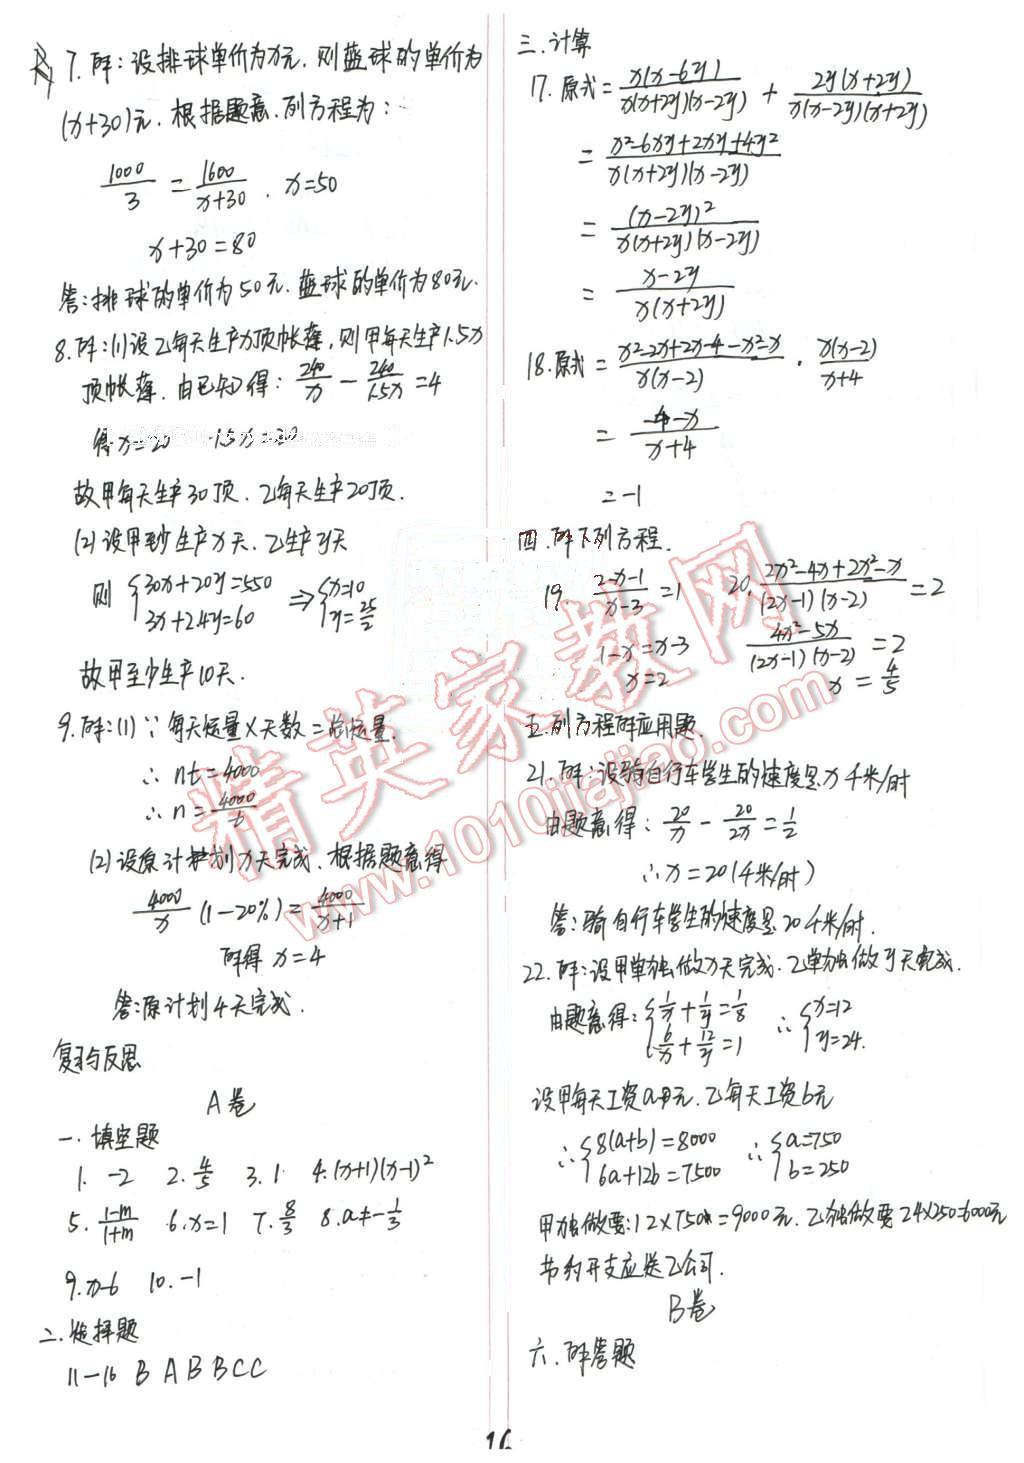 7.解:设排球单价为x元,则蓝球的单价为
(x+30)元,根据题意,列方程为:
1000/3 = 1600/(x+30) . x=50
x+30=80
答:排球的单价为50元.蓝球的单价为80元.
8.解:(1)设乙每天生产x顶帐蓬,则甲每天生产1.5x
顶帐蓬.由已知得: 240/x - 240/1.5x = 4
得x=20 1.5x=30
故甲每天生产30顶.乙每天生产20顶.
(2)设甲至少生产x天.乙生产y天
则 {30x+20y=550 3x+2.4y=60 ⇒ {x=10 y=25/2
故甲至少生产10天.
9.解:(1)∵每天运量×天数=总运量.
∴ nt=4000
∴ n=4000/t
(2)设原计划x天完成.根据题意得
4000/x (1-20%) = 4000/(x+1)
解得 x=4
答:原计划4天完成.
复习与反思
A卷
一.填空题
1. -2 2. 4/5 3. 1 4.(x+1)(x-1)²
5. (1-m)/(1+m) 6.x=1 7. 8/3 8.a≠-1/3
9.x-6 10.-1
二.选择题
11-16 B A B B C C
三.计算
17.原式= x(x-6y)/x(x+2y)(x-2y) + 2y(x+2y)/x(x-2y)(x+2y)
= (x²-6xy+2xy+4y²)/x(x+2y)(x-2y)
= (x-2y)²/x(x+2y)(x-2y)
= (x-2y)/x(x+2y)
18.原式= (x²-2x+2x-4-x²-x)/x(x-2) · x(x-2)/(x+4)
= (-4-x)/(x+4)
=-1
四.解下列方程.
19. (2-x-1)/(x-3) =1 20. (2x²-4x+2x²-x)/(2x-1)(x-2) =2
1-x=x-3 (4x²-5x)/(2x-1)(x-2) =2
x=2 x=4/5
五.列方程解应用题.
21.解:设骑自行车学生的速度是x千米/时
由题意得: 20/x - 20/2x = 1/2
∴x=20(千米/时)
答:骑自行车学生的速度是20千米/时.
22.解:设甲单独做x天完成.乙单独做y天完成.
由题意得: {1/x+1/y=1/8 6/x+12/y=1 ∴ {x=12 y=24.
设甲每天工资a元.乙每天工资b元
∴ {8(a+b)=8000 6a+12b=7500 ∴ {a=750 b=250
甲独做要:12×750=9000元.乙独做要24×250=6000元
节约开支应选乙公司.
B卷
六.解答题
16
精英家教网
www.1010jiajiao.com